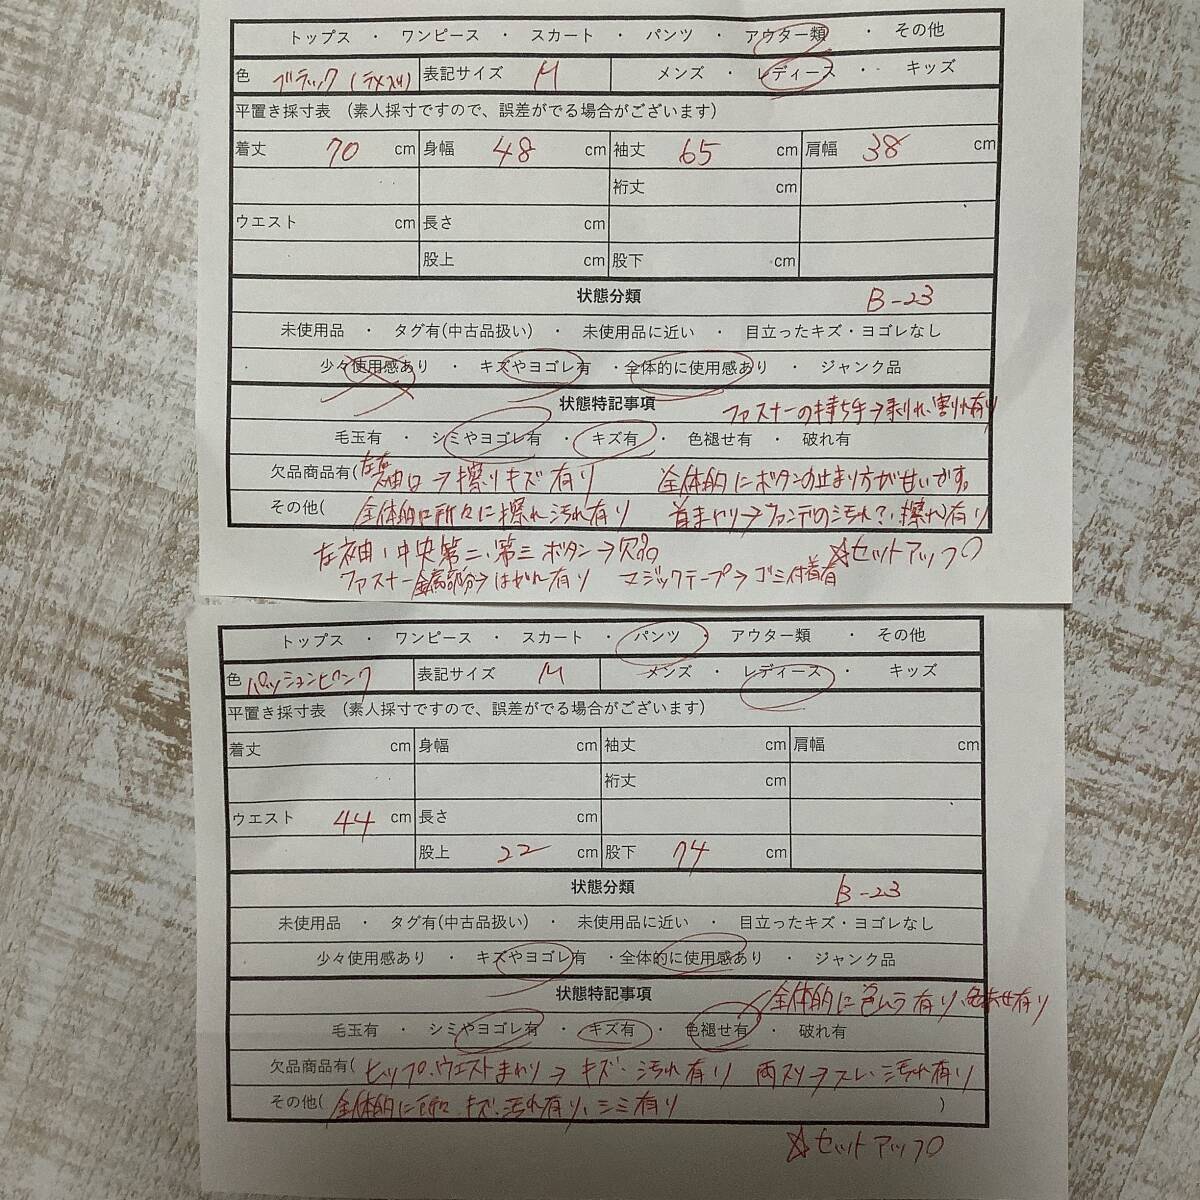 トップス ・ ワンピース ・ スカート ・ パンツ ・ アウター類 ・ その他
色 ブラック(ラメ入り) 表記サイズ M メンズ ・ レディース ・ キッズ
平置き採寸表 (素人採寸ですので、誤差がでる場合がございます)
着丈 70 cm 身幅 48 cm 袖丈 65 cm 肩幅 38 cm
裄丈 cm
ウエスト cm 長さ cm
股上 cm 股下 cm
状態分類 B-23
未使用品 ・ タグ有(中古品扱い) ・ 未使用品に近い ・ 目立ったキズ・ヨゴレなし
少々使用感あり ・ キズやヨゴレ有 ・全体的に使用感あり ・ ジャンク品
状態特記事項 ファスナーの持ち手→剥れ、割れ有り
毛玉有 ・ シミやヨゴレ有 ・ キズ有 ・ 色褪せ有 ・ 破れ有
欠品商品有( 左右袖口→擦りキズ有り 全体的にボタンの止まり方が甘いです。
その他( 全体的に所々に擦れ汚れ有り 首まわり→ファンデの汚れ?、擦れ有り
左袖、中央第二、第三ボタン→欠品 ☆セットアップ
ファスナー金属部分→はがれ有り マジックテープ→ゴミ付着有
トップス ・ ワンピース ・ スカート ・ パンツ ・ アウター類 ・ その他
色 パッションピンク 表記サイズ M メンズ ・ レディース ・ キッズ
平置き採寸表 (素人採寸ですので、誤差がでる場合がございます)
着丈 cm 身幅 cm 袖丈 cm 肩幅 cm
裄丈 cm
ウエスト 44 cm 長さ cm
股上 22 cm 股下 74 cm
状態分類 B-23
未使用品 ・ タグ有(中古品扱い) ・ 未使用品に近い ・ 目立ったキズ・ヨゴレなし
少々使用感あり ・ キズやヨゴレ有 ・全体的に使用感あり ・ ジャンク品
状態特記事項 全体的に色ムラ有り、色あせ有り
毛玉有 ・ シミやヨゴレ有 ・ キズ有 ・ 色褪せ有 ・ 破れ有
欠品商品有( ヒップ、ウエストまわり→キズ、汚れ有り 両スソ→スレ、汚れ有り
その他( 全体的に所々キズ、汚れ有り、シミ有り )
☆セットアップ